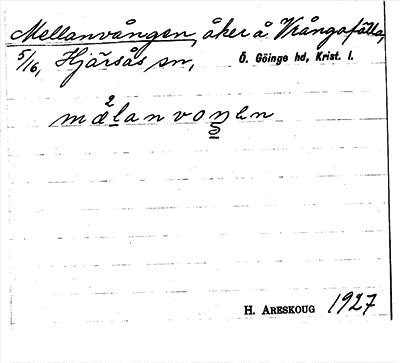 Mellanvången, åker å Vrångafälla,
5/16, Hjärsås sn, Ö. Göinge hd, Krist. l.
2
mælanvoŋen
H. ARESKOUG 1927